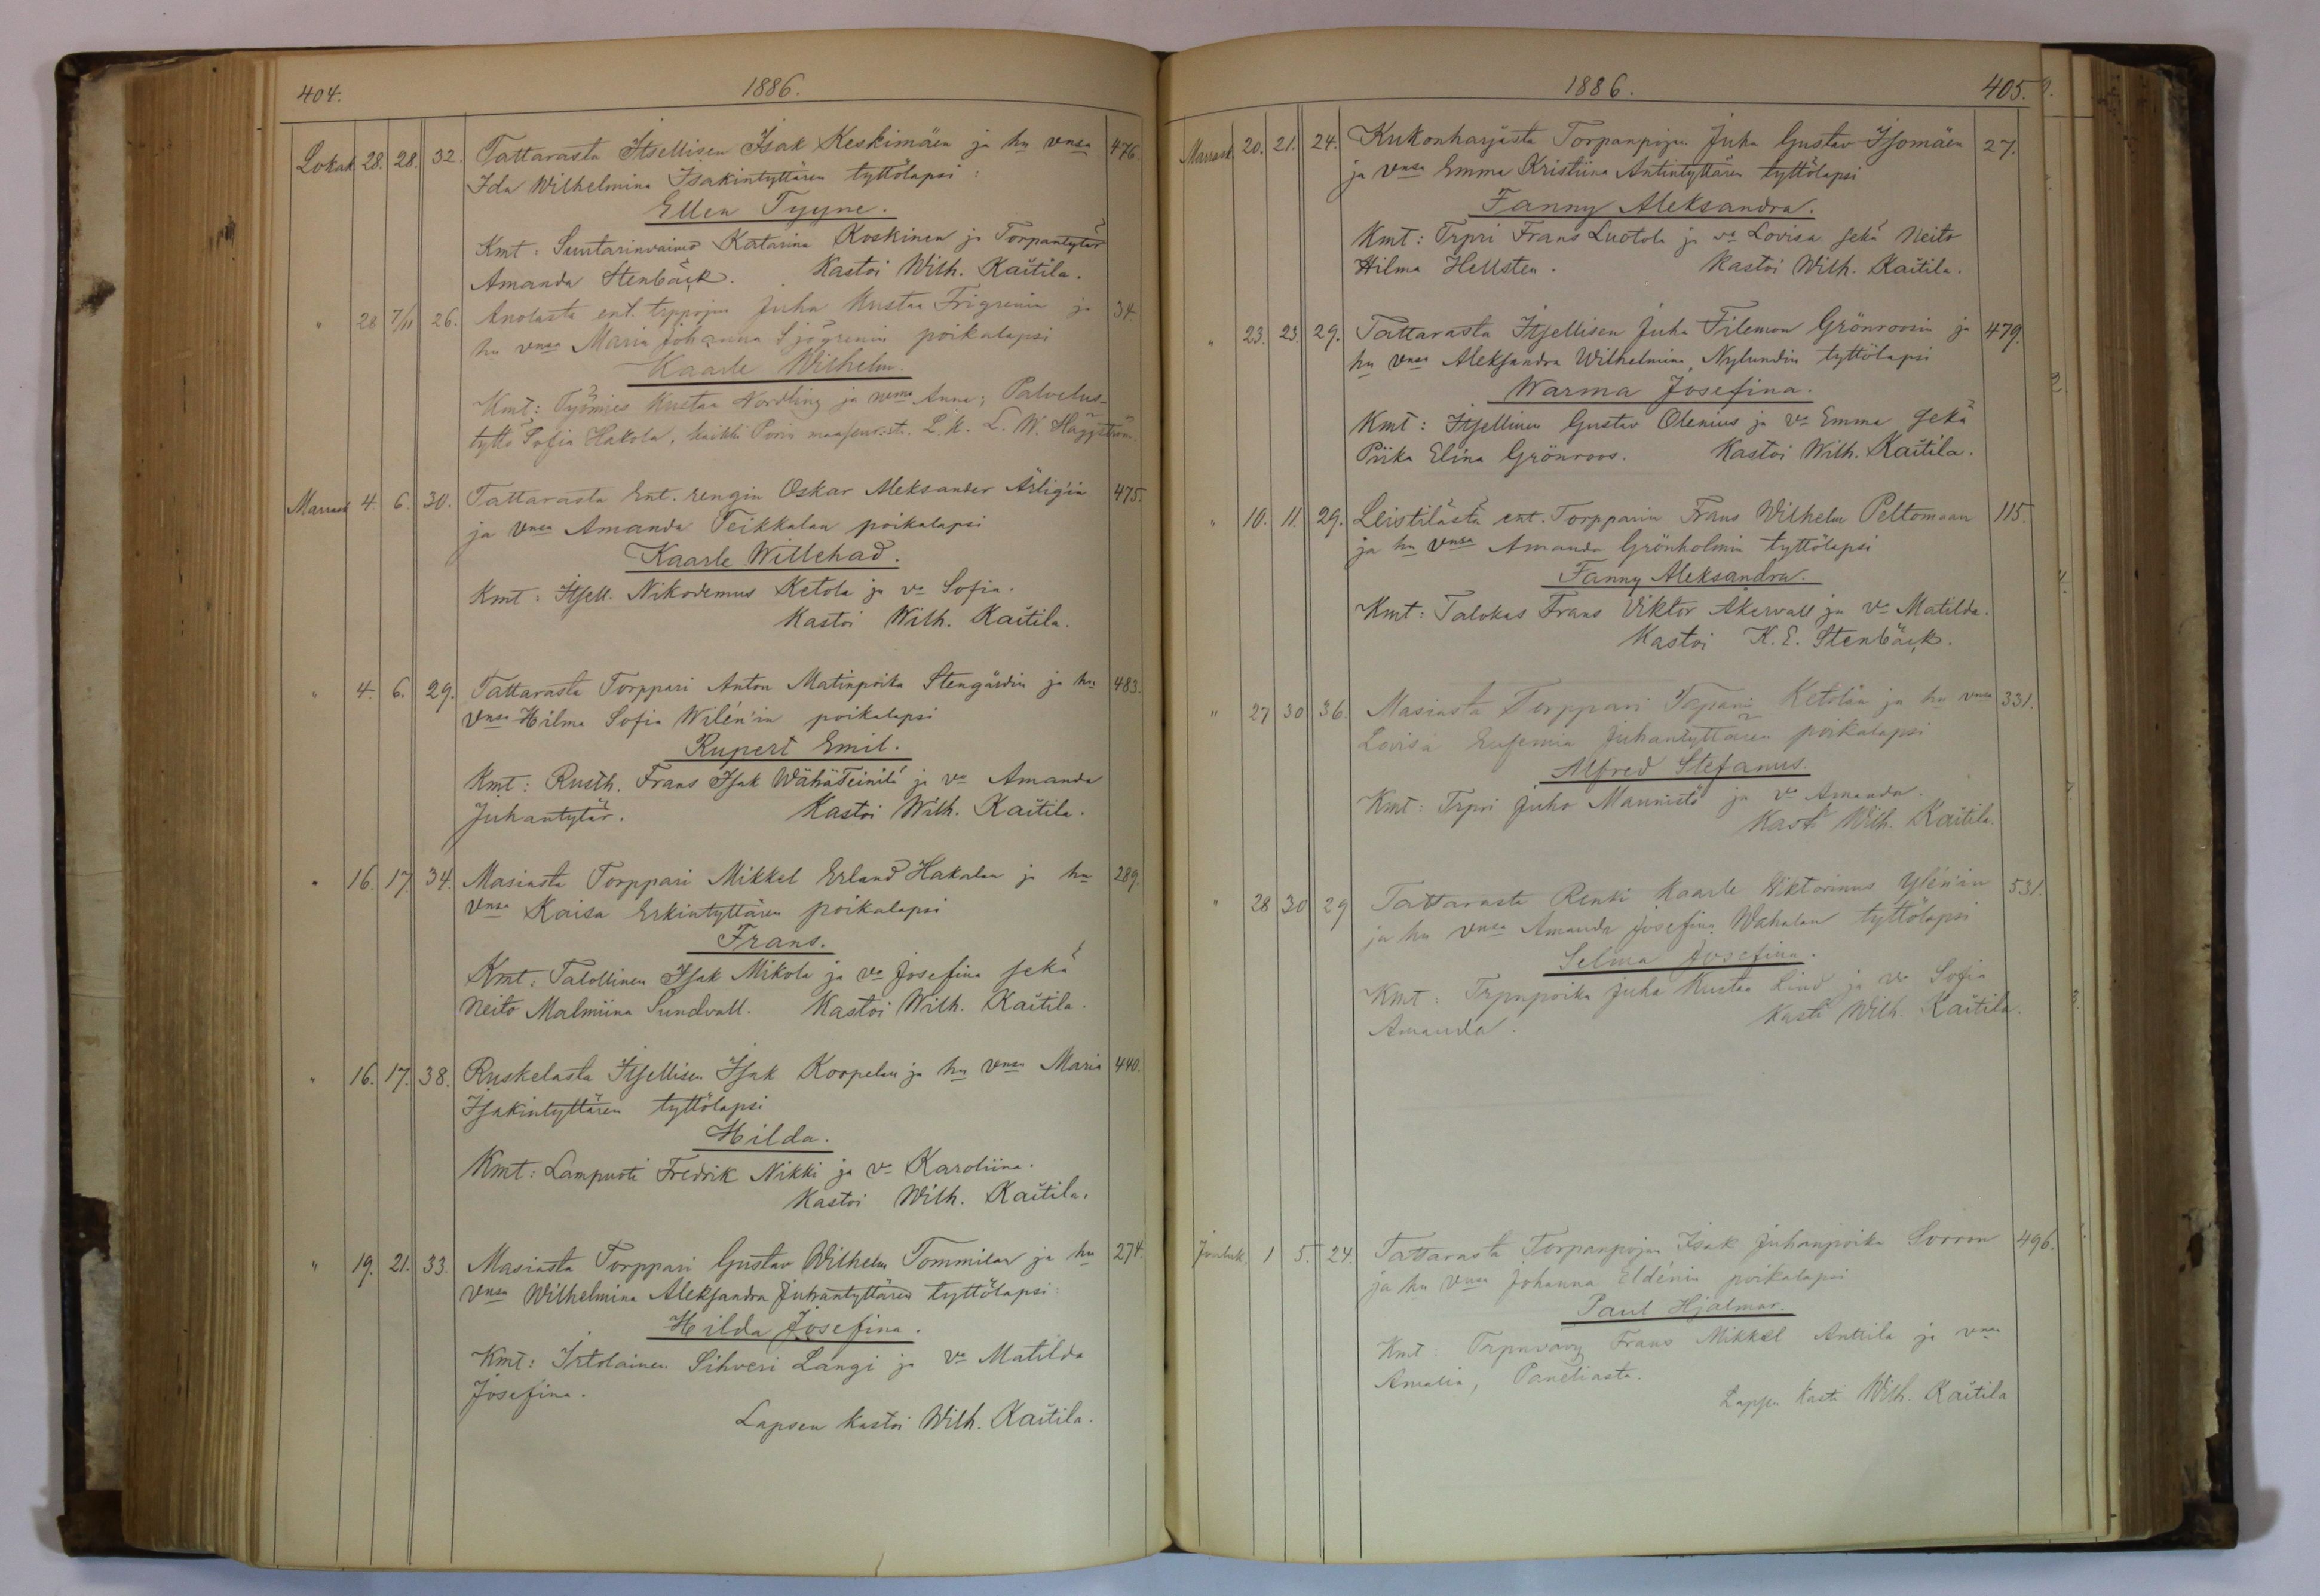 404. 1886.
Lokak. 28. 28. 32. Tattarasta Itsellisen Isak Keskimäen ja hn vnsa 476.
Ida Wilhelmina Isakintyttären tyttölapsi:
Ellen Tyyne.
Kmt: Suutarinvaimo Katarina Koskinen ja Torpantytär
Amanda Stenbäck. Kastoi Wilh. Kaitila.
" 28 7/11 26. Anolasta ent. trppojan Juha Kustaa Frigrenin ja 34.
hn vnsa Maria Johanna Sjögrenin poikalapsi
Kaarle Wilhelm.
Kmt: Työmies Kustaa Nordling ja vmo Anna; Palvelus-
tyttö Sofia Hakola, kaikki Porin maaseur.st. L. k. L. W. Häggström.
Marrask 4. 6. 30. Tattarasta Ent. rengin Oskar Aleksander Ärlig'in 475.
ja vnsa Amanda Teikkalan poikalapsi
Kaarle Willehad.
Kmt: Itsell. Nikodemus Ketola ja va Sofia.
Kastoi Wilh. Kaitila.
" 4. 6. 29. Tattarasta Torppari Anton Matinpoika Stengårdin ja hn 483.
vnsa Hilma Sofia Wilén'in poikalapsi
Rupert Emil.
Kmt: Rusth. Frans Isak WähäTeinilä ja va Amanda
Juhantytär. Kastoi Wilh. Kaitila.
" 16. 17. 34. Masiasta Torppari Mikkel Erland Hakalan ja hn 289.
vnsa Kaisa Erkintyttären poikalapsi
Frans.
Kmt: Talollinen Isak Mikola ja va Josefina sekä
Neito Malmiina Sundvall. Kastoi Wilh. Kaitila.
" 16. 17. 38. Ruskelasta Itsellisen Isak Korpelan ja hn vnsa Maria 440.
Isakintyttären tyttölapsi
Hilda.
Kmt: Lampuoti Fredrik Nikki ja va Karoliina.
Kastoi Wilh. Kaitila.
" 19. 21. 33. Masiasta Torppari Gustav Wilhelm Tommilan ja hn 274.
vnsa Wilhelmina Aleksandra Juhantyttären tyttölapsi:
Hilda Josefina.
Kmt: Irtolainen Sihveri Langi ja va Matilda
Josefina.
Lapsen kastoi Wilh. Kaitila.
1886. 405.
Marrask 20. 21. 24. Kukonharjasta Torpanpojan Juha Gustav Isomäen 27.
ja vnsa Emma Kristiina Antintyttären tyttölapsi
Fanny Aleksandra.
Kmt: Trpri Frans Luotola ja va Lovisa sekä Neito
Hilma Hellsten. Kastoi Wilh. Kaitila.
" 23. 23. 29. Tattarasta Itsellisen Juha Filemon Grönroosin ja 479.
hn vnsa Aleksandra Wilhelmina Nylundin tyttölapsi
Warma Josefina.
Kmt: Itsellinen Gustav Olenius ja va Emma sekä
Piika Elina Grönroos. Kastoi Wilh. Kaitila.
" 10. 11. 29. Leistilästä ent. Torpparin Frans Wilhelm Peltomaan 115.
ja hn vnsa Amanda Grönholmin tyttölapsi
Fanny Aleksandra.
Kmt: Talokas Frans Viktor Åkervall ja va Matilda.
Kastoi K. E. Stenbäck.
" 27 30 36. Masiasta Torppari Tapani Ketolan ja hn vnsa 331.
Lovisa Eufemia Juhantyttären poikalapsi
Alfred Stefanus.
Kmt: Trpri Juho Mannistö ja va Amanda.
Kasti Wilh. Kaitila.
" 28 30 29 Tattarasta Renki Kaarle Wiktorinus Ylén'in 531.
ja hn vnsa Amanda Josefina Wahalan tyttölapsi
Selma Josefina.
Kmt: Trpnpoika Juha Kustaa Lind ja va Sofia
Amanda. Kasti Wilh. Kaitila.
Jouluk. 1 5. 24. Tattarasta Torpanpojan Isak Juhanpoika Sorron 496.
ja hn vnsa Johanna Eldénin poikalapsi
Paul Hjalmar.
Kmt: Frans Mikkel Anttila ja vnsa
Amalia, Paneliasta.
Lapsen kasti Wilh. Kaitila